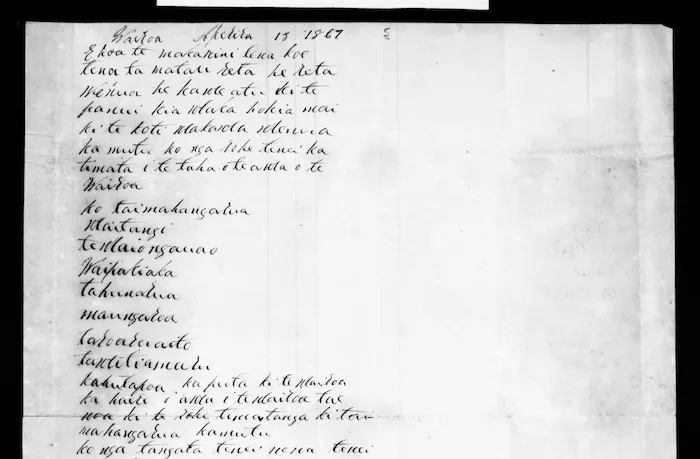 Wairoa Aperira 15 1867
E hoa te makarini tena koe
tena ta matau reta he reta
whenua he kawe atu ki te
panui kia waea hokia mai
ki te koti whakawa whenua
ka mutu ko nga rohe tenei ka
timata i te taha o te awa o te
Wairoa
ko taimahangarua
Waitangi
tewaionganao
Waipatiaka
tahunarua
maungaroa
taroaroaito
tawitiamaru
kahutapoa ka puta ki tewairoa
ka haere i awa i tewairoa tae
noa ki te rohe timatanga ki tai
mahangarua kamutu
ko nga tangata tenei nona tenei